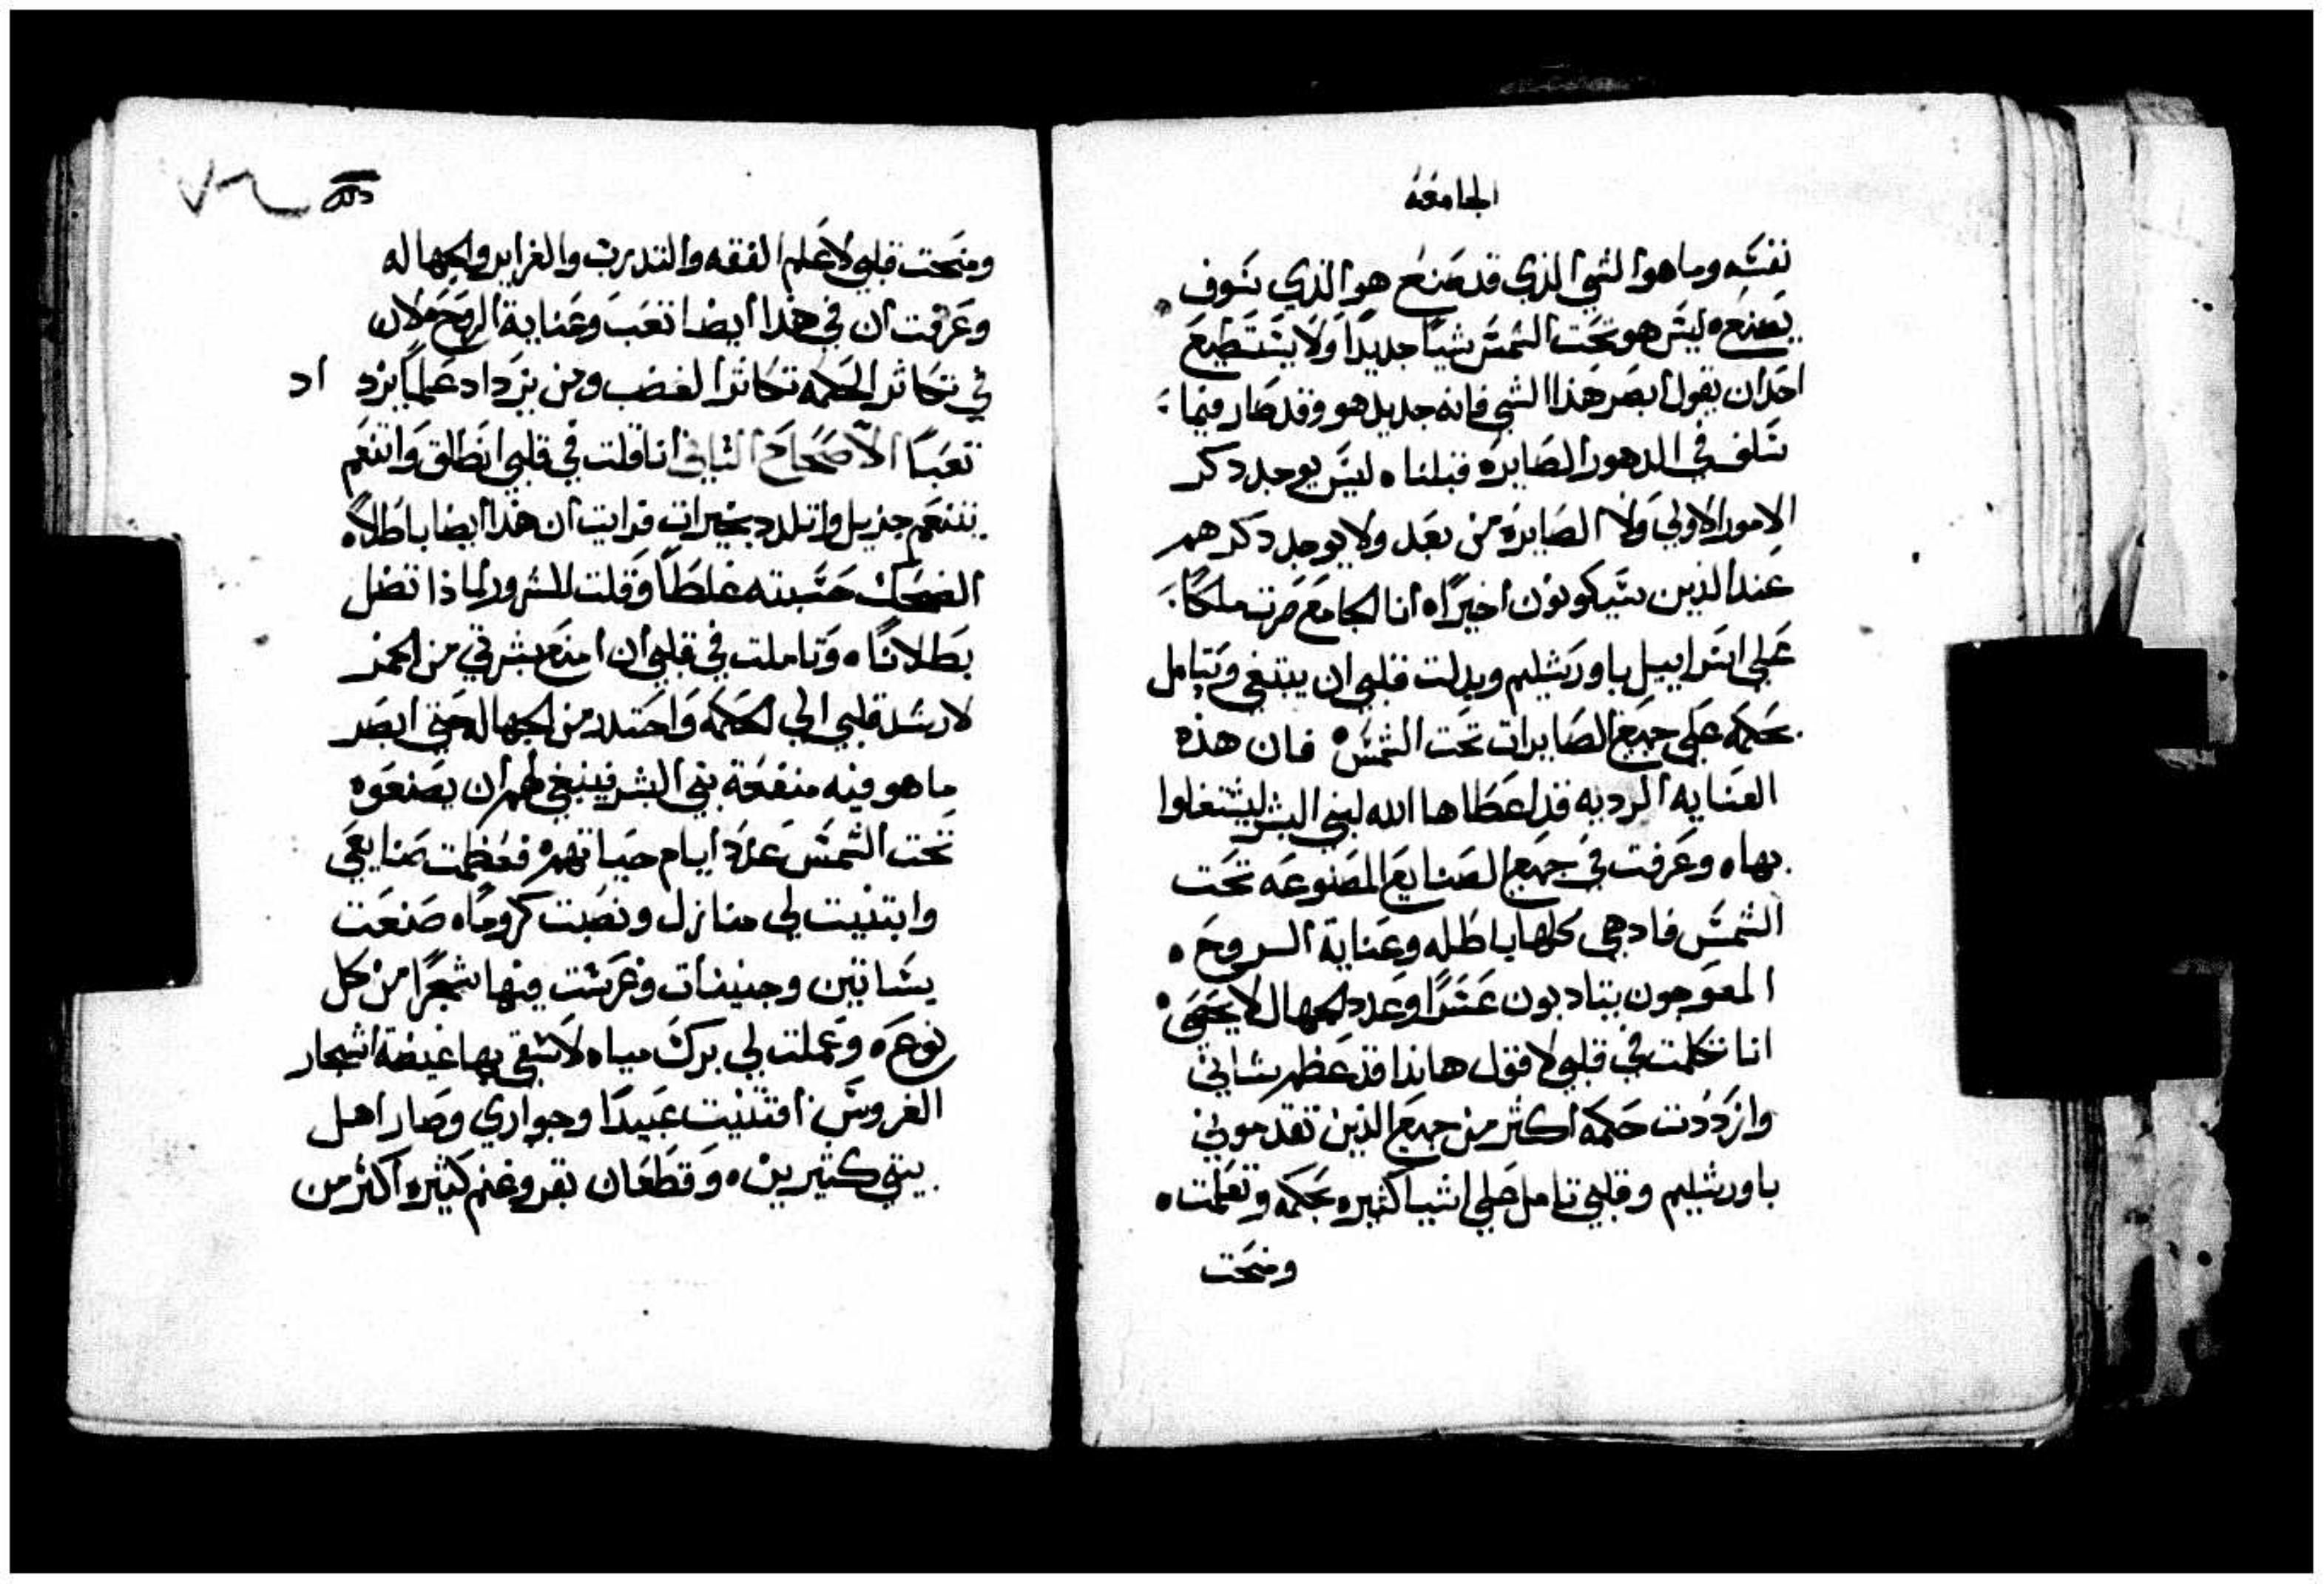 الجامعه
نفسه وما هوا الشي الذي قد صنع هوا الذي سوف
يصنع ه ليس هو تحت الشمس شيا جديداً ولا يستطيع
احدان يقول ابصر هذا الشي فانه جديد هو وقد صار فيما
سلف في الدهور الصايره قبلنا ه ليس يوجد دكر
الامور الاولي ولا الصايره من بعد ولا يوجد دكرهم
عند الذين سيكونون اخيراً ه انا الجامع صرت ملكاً
علي اسراييل باورشليم وبدلت قلبي ان يبتغي ويتامل
بحكمه علي جميع الصايرات تحت الشمس ه فان هذه
العنايه الرديه قد اعطاها الله لبني البشر ليشتغلوا
بها ه وعرفت في جميع الصنايع المصنوعه تحت
الشمس فادهي كلها باطله وعناية الروح ه
المعوجون يتادبون عسراً وعدد الجهال لا يحصي ه
انا تكلمت في قلبي لاقول هانذا قد عظم شاني
وازددت حكمه اكثر من جميع الذين تقدموني
باورشليم وقلبي تامل علي اشيا كثيره بحكمه وتعلمت ه
ومنحت
ومنحت قلبي لاعلم الفقه والتدرب والغرايد والجهاله
وعرفت ان في هذا ايضا تعب وعناية الروح لان
في تكاثر الحكمه تكاثر الغضب ومن يزداد علماً يزد اد
تعباً الاصحاح الثاني انا قلت في قلبي انطلق واتنعم
بتنعم جزيل واتلدد بخيرات فرايت ان هذا ايضا باطلاً ه
الضحك حسبته غلطاً وقلت للسرور لماذا تضل
بطلاناً ه وتاملت في قلبي ان امنع بشرتي من الخمر
لارشد قلبي الي الحكمه واحتدر من الجهاله حتي ابصر
ما هو فيه منفعة بني البشر فينبغي لهم ان يصنعوه
تحت الشمس عدد ايام حياتهم ه فعظمت صنايعي
وابتنيت لي منازل ونصبت كروماً ه صنعت
بساتين وجنينات وغرست فيها شجراً من كل
نوع ه وعملت لي برك مياه لاسقي بها غيضة اشجار
الغروس اقتنيت عبيداً وجواري وصار اهل
بيتي كثيرين ه وقطعان بقر وغنم كثيره اكثر من